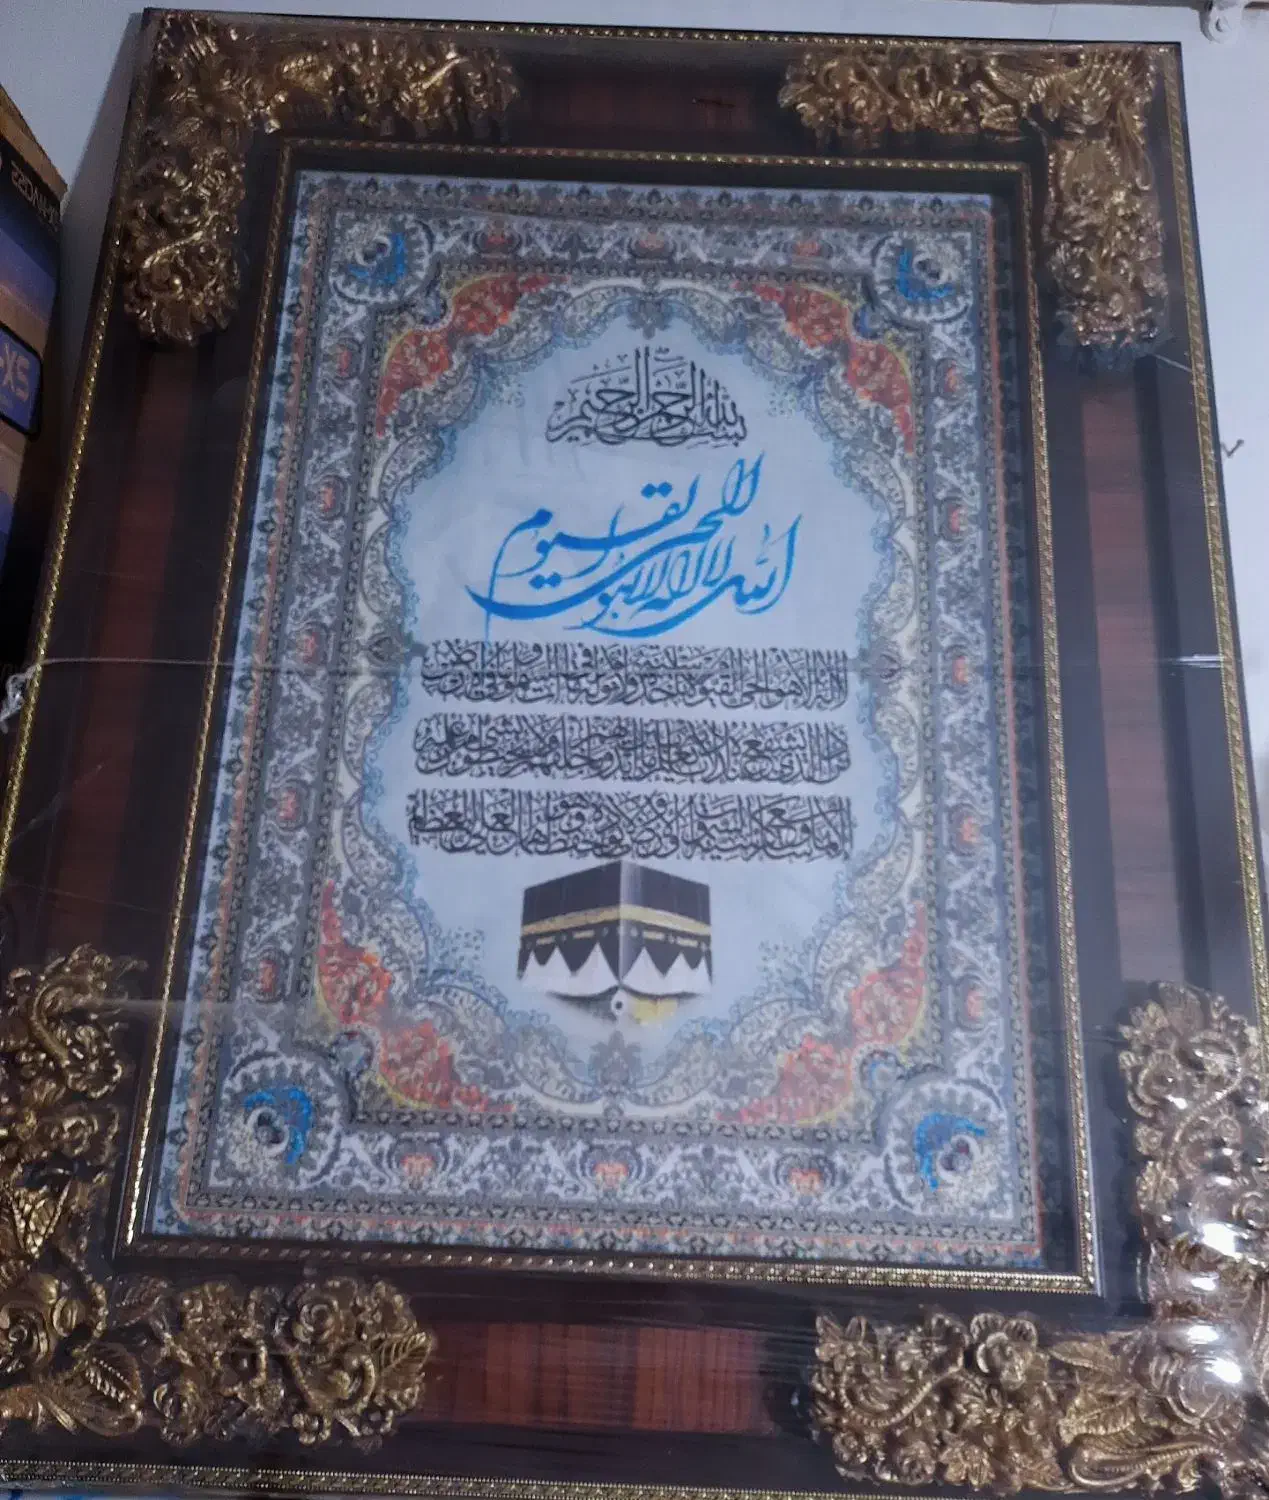 بسم الله الرحمن الرحيم
الله لا اله الا هو الحي القيوم
الله لا اله الا هو الحي القيوم لا تأخذه سنة ولا نوم له ما في السموات وما في الارض
من ذا الذي يشفع عنده الا باذنه يعلم ما بين ايديهم وما خلفهم ولا يحيطون بشيء من علمه
الا بما شاء وسع كرسيه السموات والارض ولا يؤده حفظهما وهو العلي العظيم